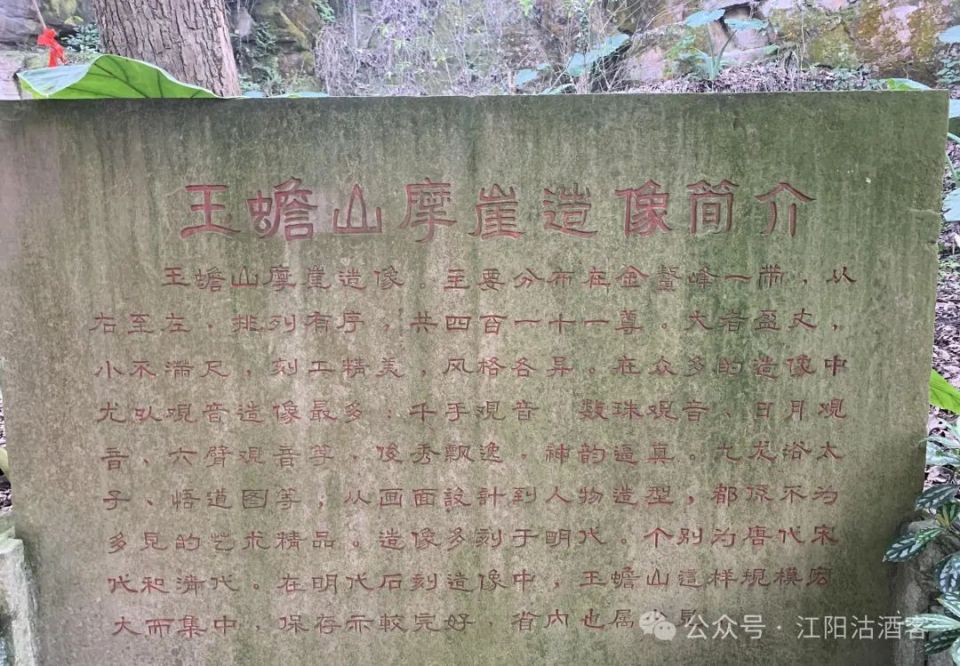 玉蟾山摩崖造像简介
玉蟾山摩崖造像。主要分布在金鳌峰一带，从
右至左，排列有序，共四百一十一尊。大者盈丈，
小不满尺，刻工精美，风格各异。在众多的造像中
尤以观音造像最多：千手观音、数珠观音、日月观
音、六臂观音等，俊秀飘逸，神韵逼真。九龙浴太
子、悟道图等，从画面設計到人物造型，都係不为
多見的艺术精品。造像多刻于明代。个别为唐代宋
代和清代。在明代石刻造像中，玉蟾山這样规模宏
大而集中，保存示較完好，省内也属
公众号·江阳沽酒客